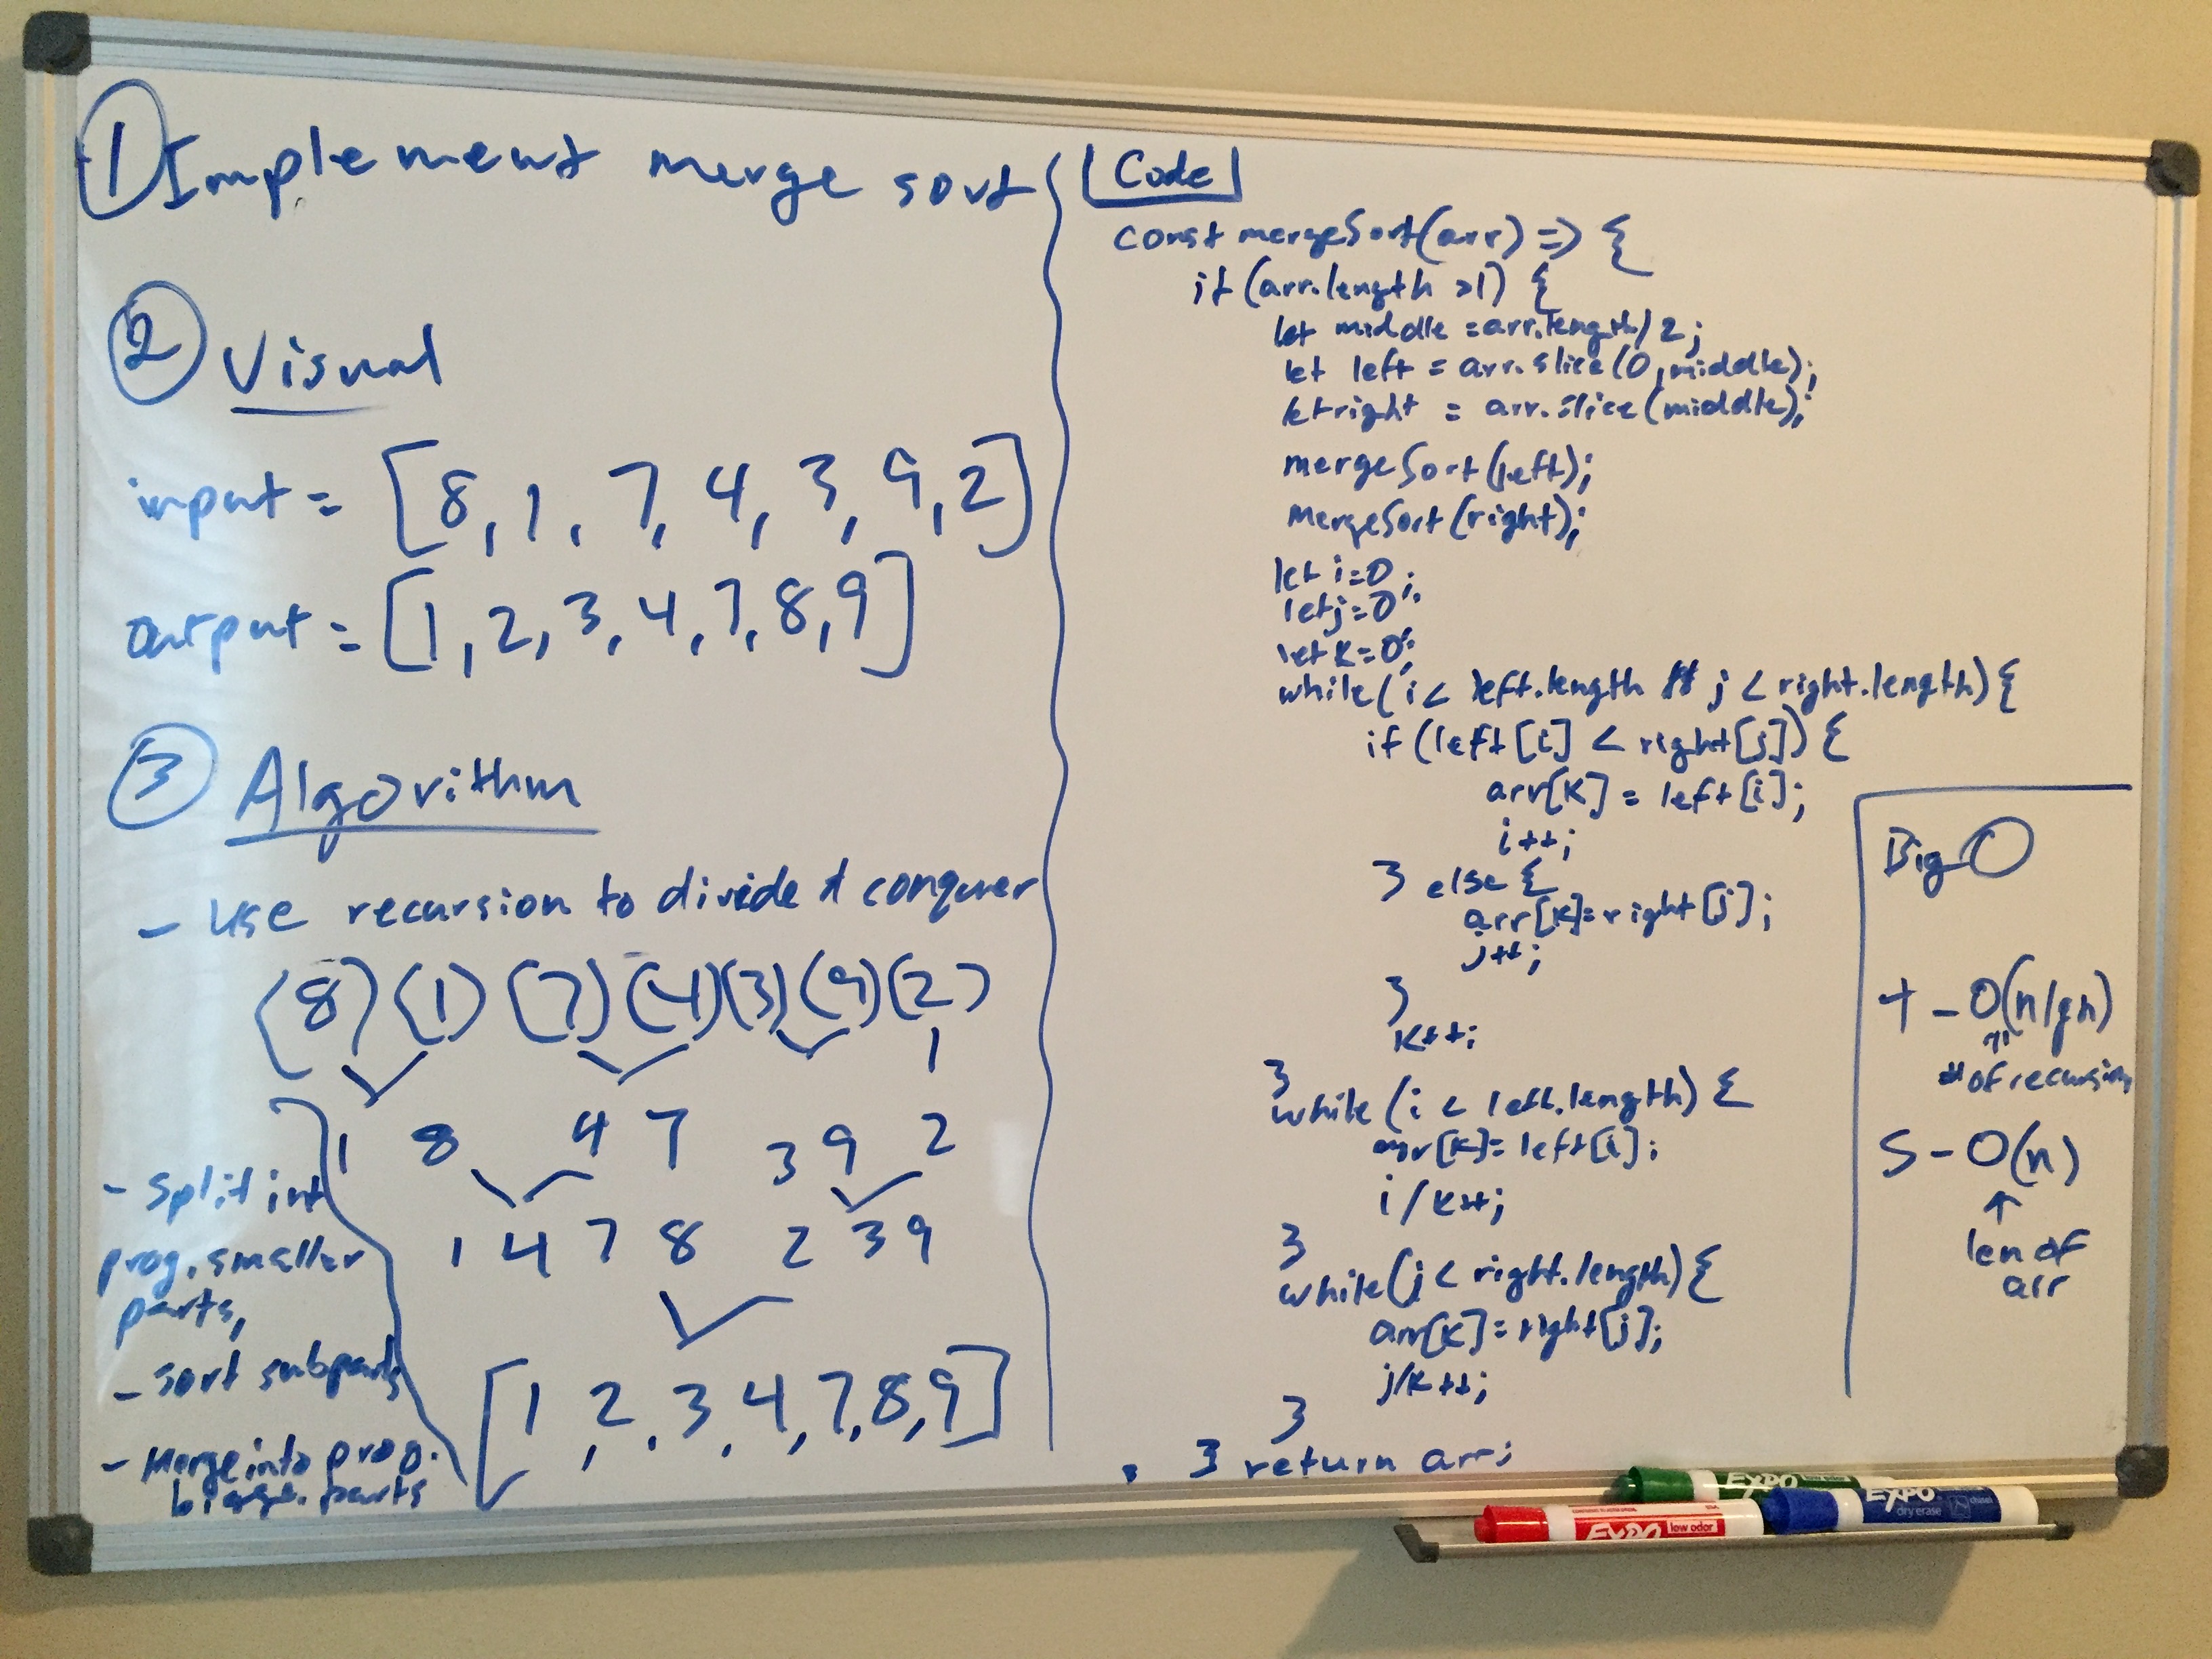 ① Implement merge sort
② Visual
input = [8, 1, 7, 4, 3, 9, 2]
output = [1, 2, 3, 4, 7, 8, 9]
③ Algorithm
- use recursion to divide & conquer
(8) (1) (7) (4) (3) (9) (2)
1 8 4 7 3 9 2
1 4 7 8 2 3 9
[1, 2, 3, 4, 7, 8, 9]
- split int
prog. smaller
parts,
- sort subparts
- Merge into prog.
parts
Code
const mergeSort(arr) => {
if (arr.length >1) {
let middle = arr.length/2;
let left = arr.slice(0, middle);
let right = arr.slice(middle);
mergeSort(left);
mergeSort(right);
let i=0;
let j=0;
let k=0;
while( i < left.length && j < right.length) {
if (left[i] < right[j]) {
arr[k] = left[i];
i++;
} else {
arr[k]=right[j];
j++;
}
k++;
}
while (i < left.length) {
arr[k]=left[i];
i/k++;
}
while(j < right.length) {
arr[k]=right[j];
j/k++;
}
} return arr;
Big O
t - O(n lg n)
# of recursion
S - O(n)
↑
len of
arr
EXPO
EXPO
low odor
EXPO
dry erase
chisel